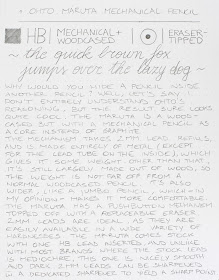 + OHTO MARUTA MECHANICAL PENCIL
HB MECHANICAL + WOODCASED ERASER-TIPPED
~ the quick brown fox
jumps over the lazy dog ~
WHY WOULD YOU HIDE A PENCIL INSIDE
ANOTHER PENCIL? WELL, LET'S SAY I
DON'T ENTIRELY UNDERSTAND OHTO'S
REASONING, BUT THE RESULT SURE LOOKS
QUITE COOL. THE MARUTA IS A WOOD-
CASED BUT WITH A MECHANICAL PENCIL AS
A CORE INSTEAD OF GRAPHITE.
THE MECHANISM TAKES 2MM LEAD REFILLS,
AND IS MADE ENTIRELY OF METAL (EXCEPT
FOR THE LEAD TUBE ON THE INSIDE), WHICH
GIVES IT SOME WEIGHT. OTHER THAN THAT,
IT'S STILL LARGELY MADE OUT OF WOOD, SO
THE WEIGHT IS NOT FAR FROM A
NORMAL WOODCASED PENCIL. IT'S ALSO
WIDER, LIKE A JUMBO PENCIL, WHICH IN
MY OPINION MAKES IT MORE COMFORTABLE.
THE MARUTA HAS A PUSHBUTTON MECHANISM
TOPPED OFF WITH A REPLACEABLE ERASER.
2MM LEADS ARE IDEAL AS THEY ARE
EASILY AVAILABLE IN A WIDE VARIETY OF
HARDNESSES. THE MARUTA COMES STOCK
WITH ONE HB LEAD INSERTED, AND UNLIKE
WITH MOST BRANDS WHERE THE STOCK LEAD
IS MEDIOCRE, THIS ONE IS NICELY SMOOTH
AND DARK. 2MM LEADS CAN BE SHARPENED
IN A DEDICATED SHARPENER TO YIELD A SHARP POINT